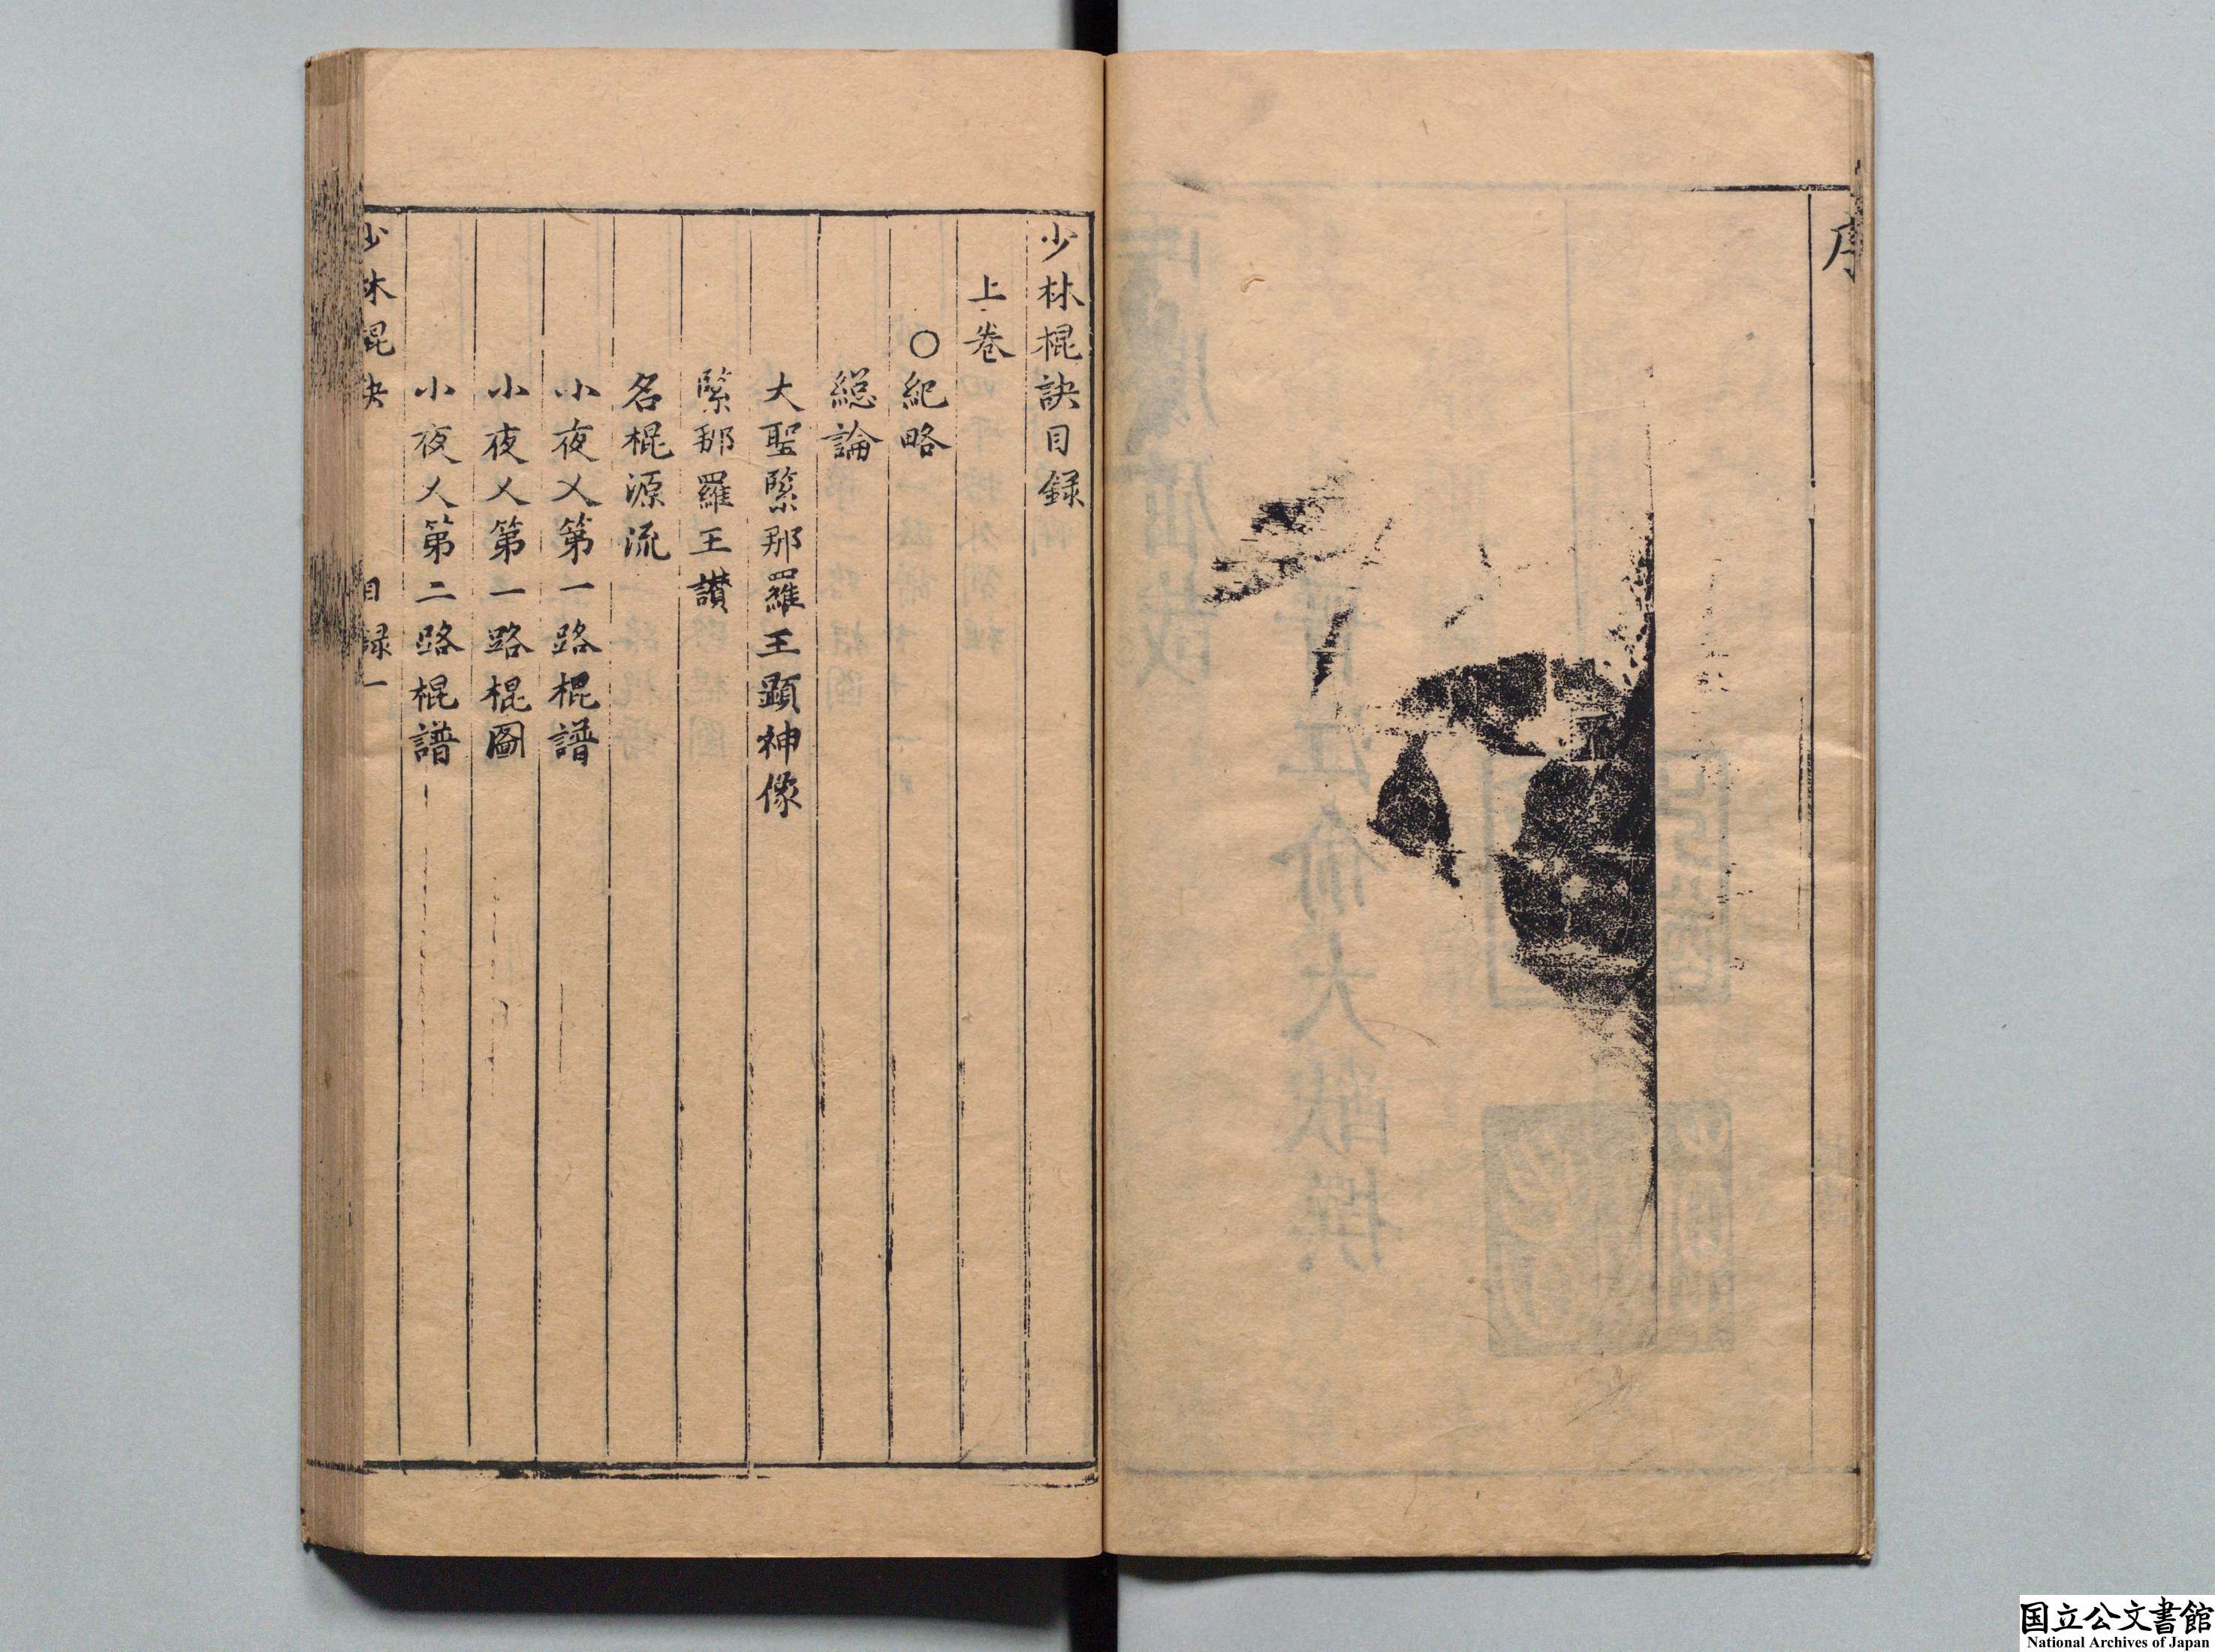 序
少林棍訣目録
上卷
○紀略
総論
大聖緊那羅王顕神像
緊那羅王讃
名棍源流
小夜乂第一路棍譜
小夜乂第一路棍圖
小夜乂第二路棍譜
少林棍訣 目録 一
国立公文書館
National Archives of Japan